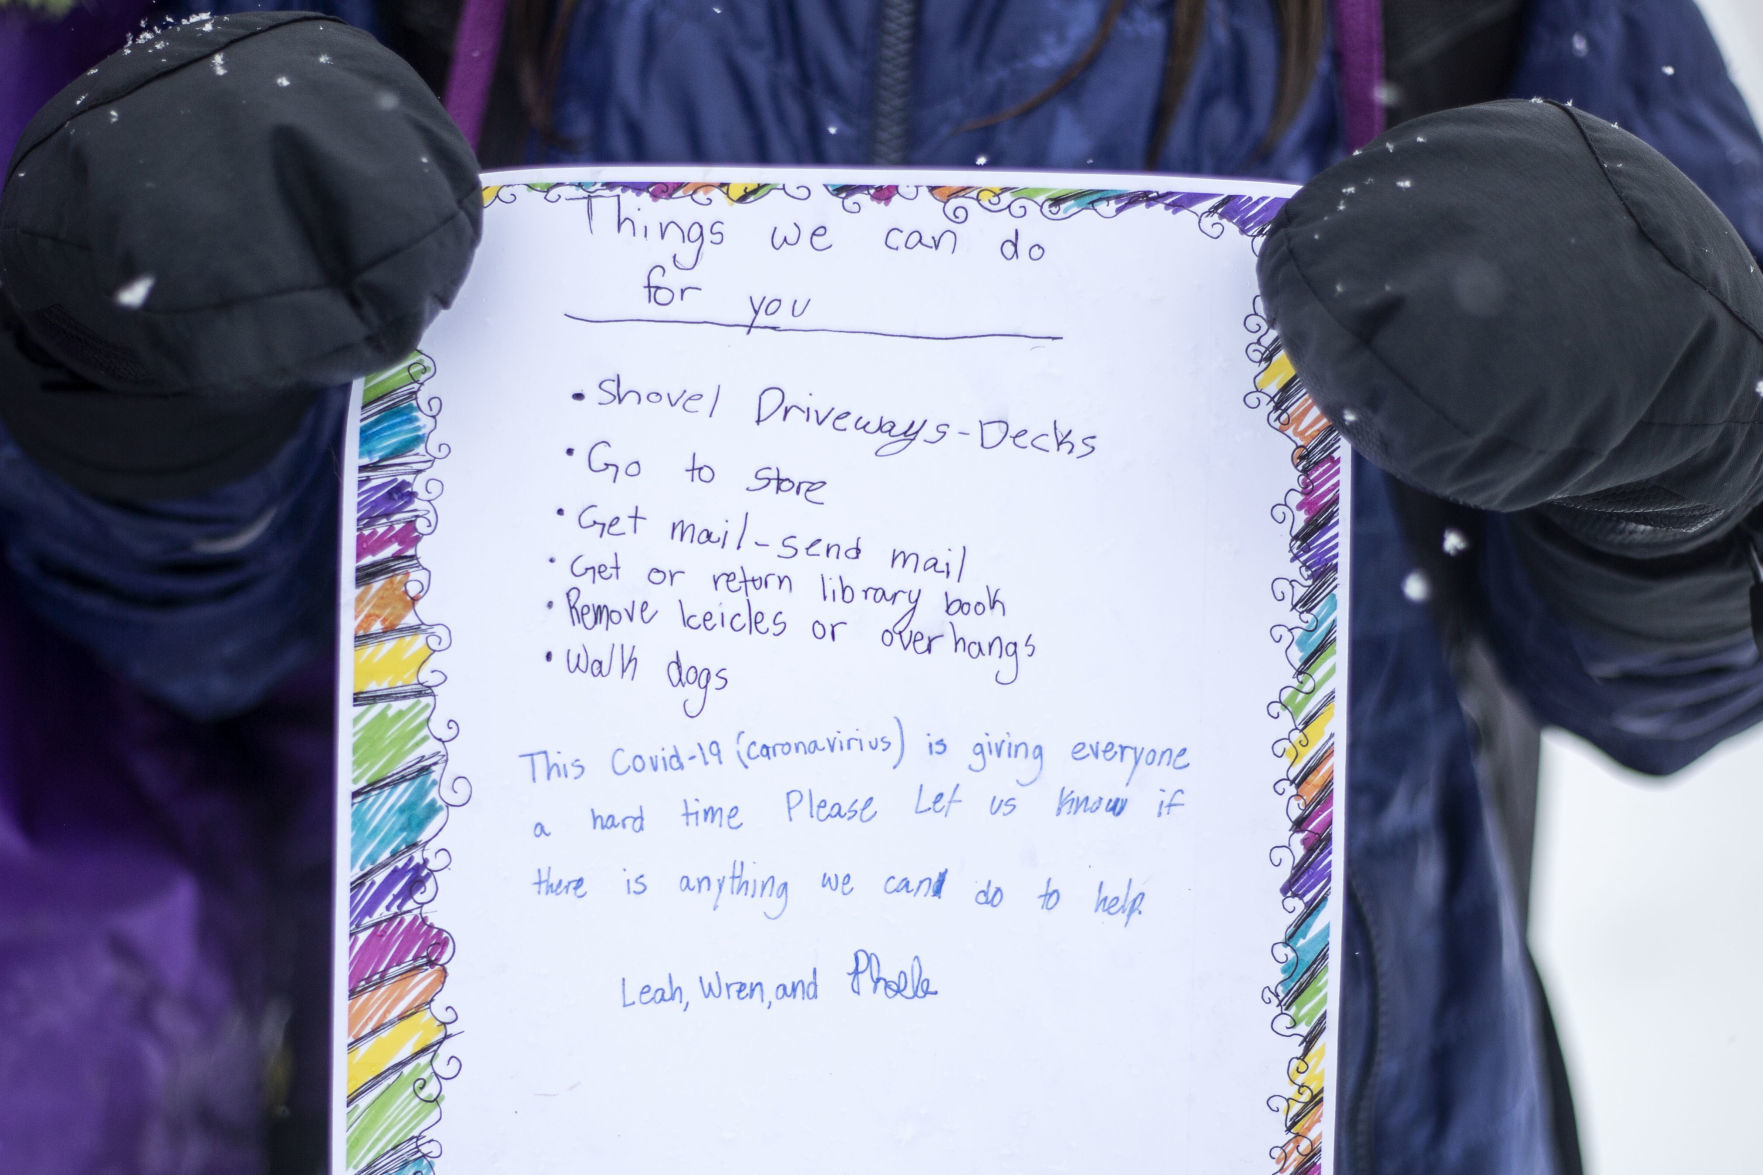 Things we can do
for you
• Shovel Driveways-Decks
• Go to store
• Get mail-send mail
• Get or return library book
• Remove Iceicles or overhangs
• Walk dogs
This Covid-19 (caronavirius) is giving everyone
a hard time Please Let us know if
there is anything we can do to help.
Leah, Wren, and Phoebe